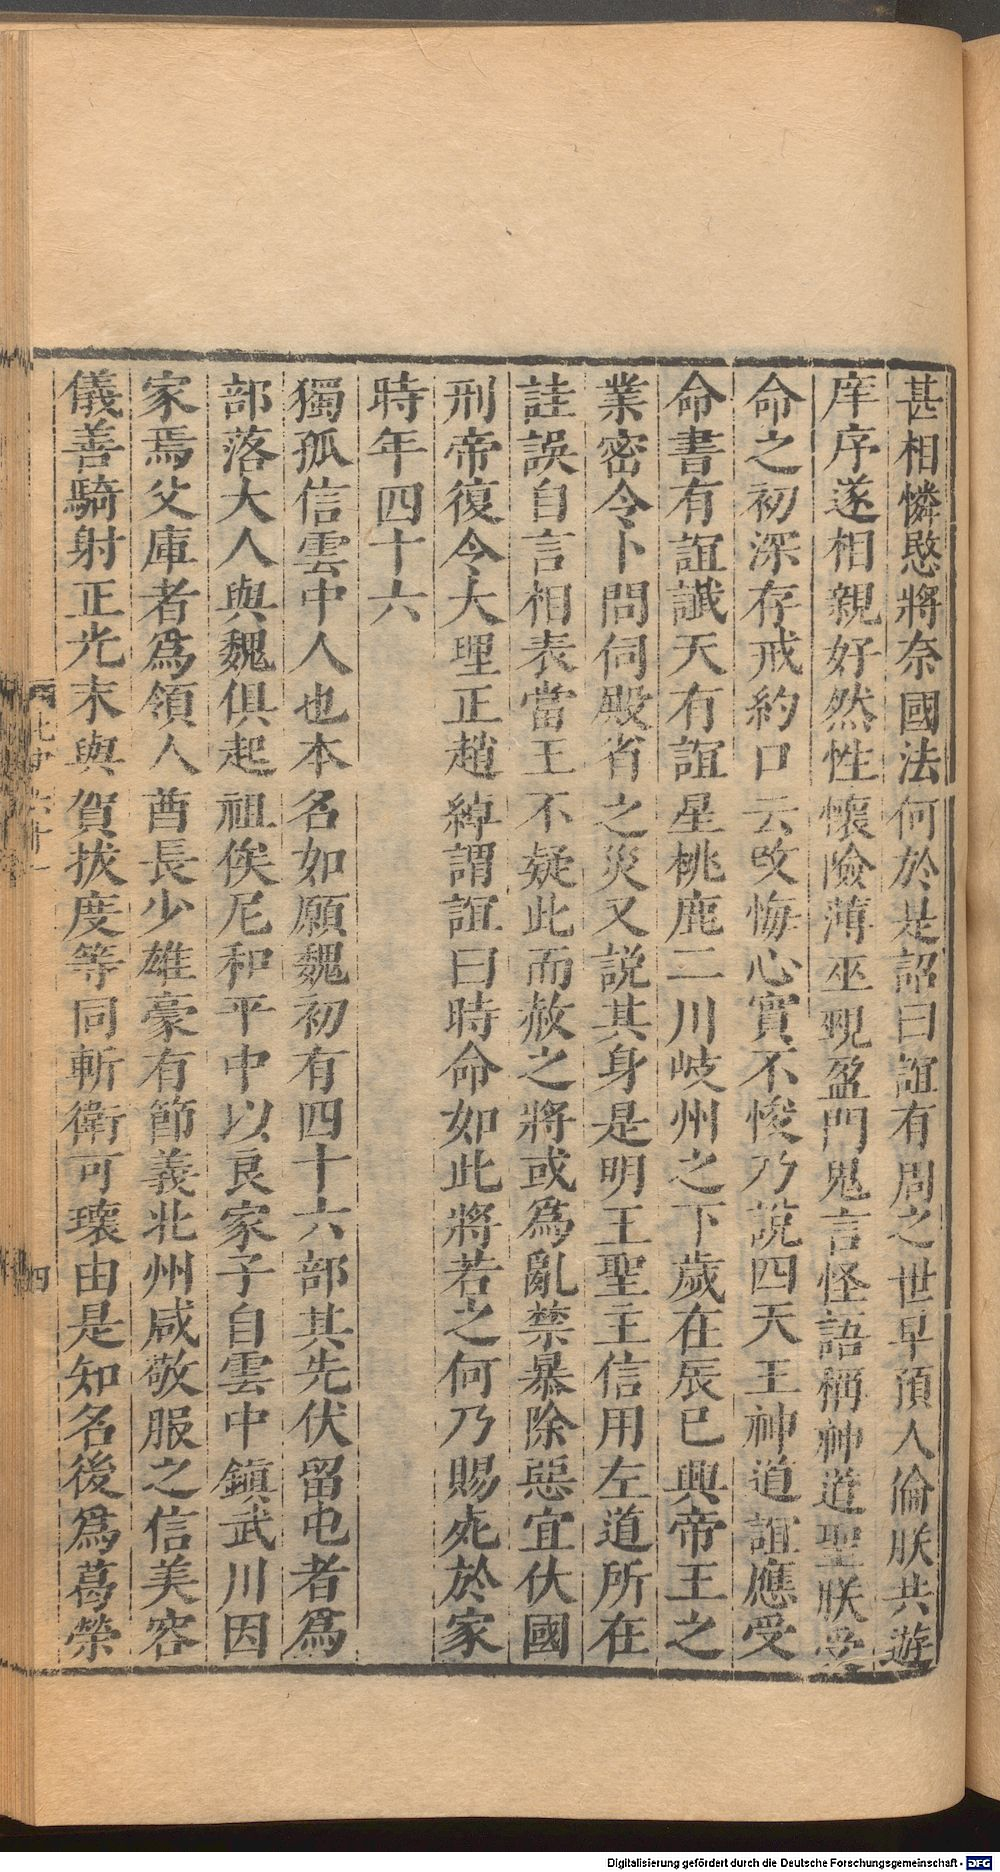 甚相憐愍將奈國法何於是詔曰誼有周之世早預人倫朕共遊
庠序遂相親好然性懷險薄巫覡盈門鬼言怪語稱神道聖朕受
命之初深存戒約口云改悔心實不悛乃說四天王神道誼應受
命書有誼讖天有誼星桃鹿二川岐州之下歲在辰巳興帝王之
業密令卜問伺殿省之災又說其身是明王聖主信用左道所在
詿誤自言相表當王不疑此而赦之將或爲亂禁暴除惡宜伏國
刑帝復令大理正趙綽謂誼曰時命如此將若之何乃賜死於家
時年四十六
獨孤信雲中人也本名如願魏初有四十六部其先伏留屯者爲
部落大人與魏俱起祖俟尼和平中以良家子自雲中鎮武川因
家焉父庫者爲領人酋長少雄豪有節義北州咸敬服之信美容
儀善騎射正光末與賀拔度等同斬衛可瓌由是知名後爲葛榮
北史六十一
四
Digitalisierung gefördert durch die Deutsche Forschungsgemeinschaft - DFG